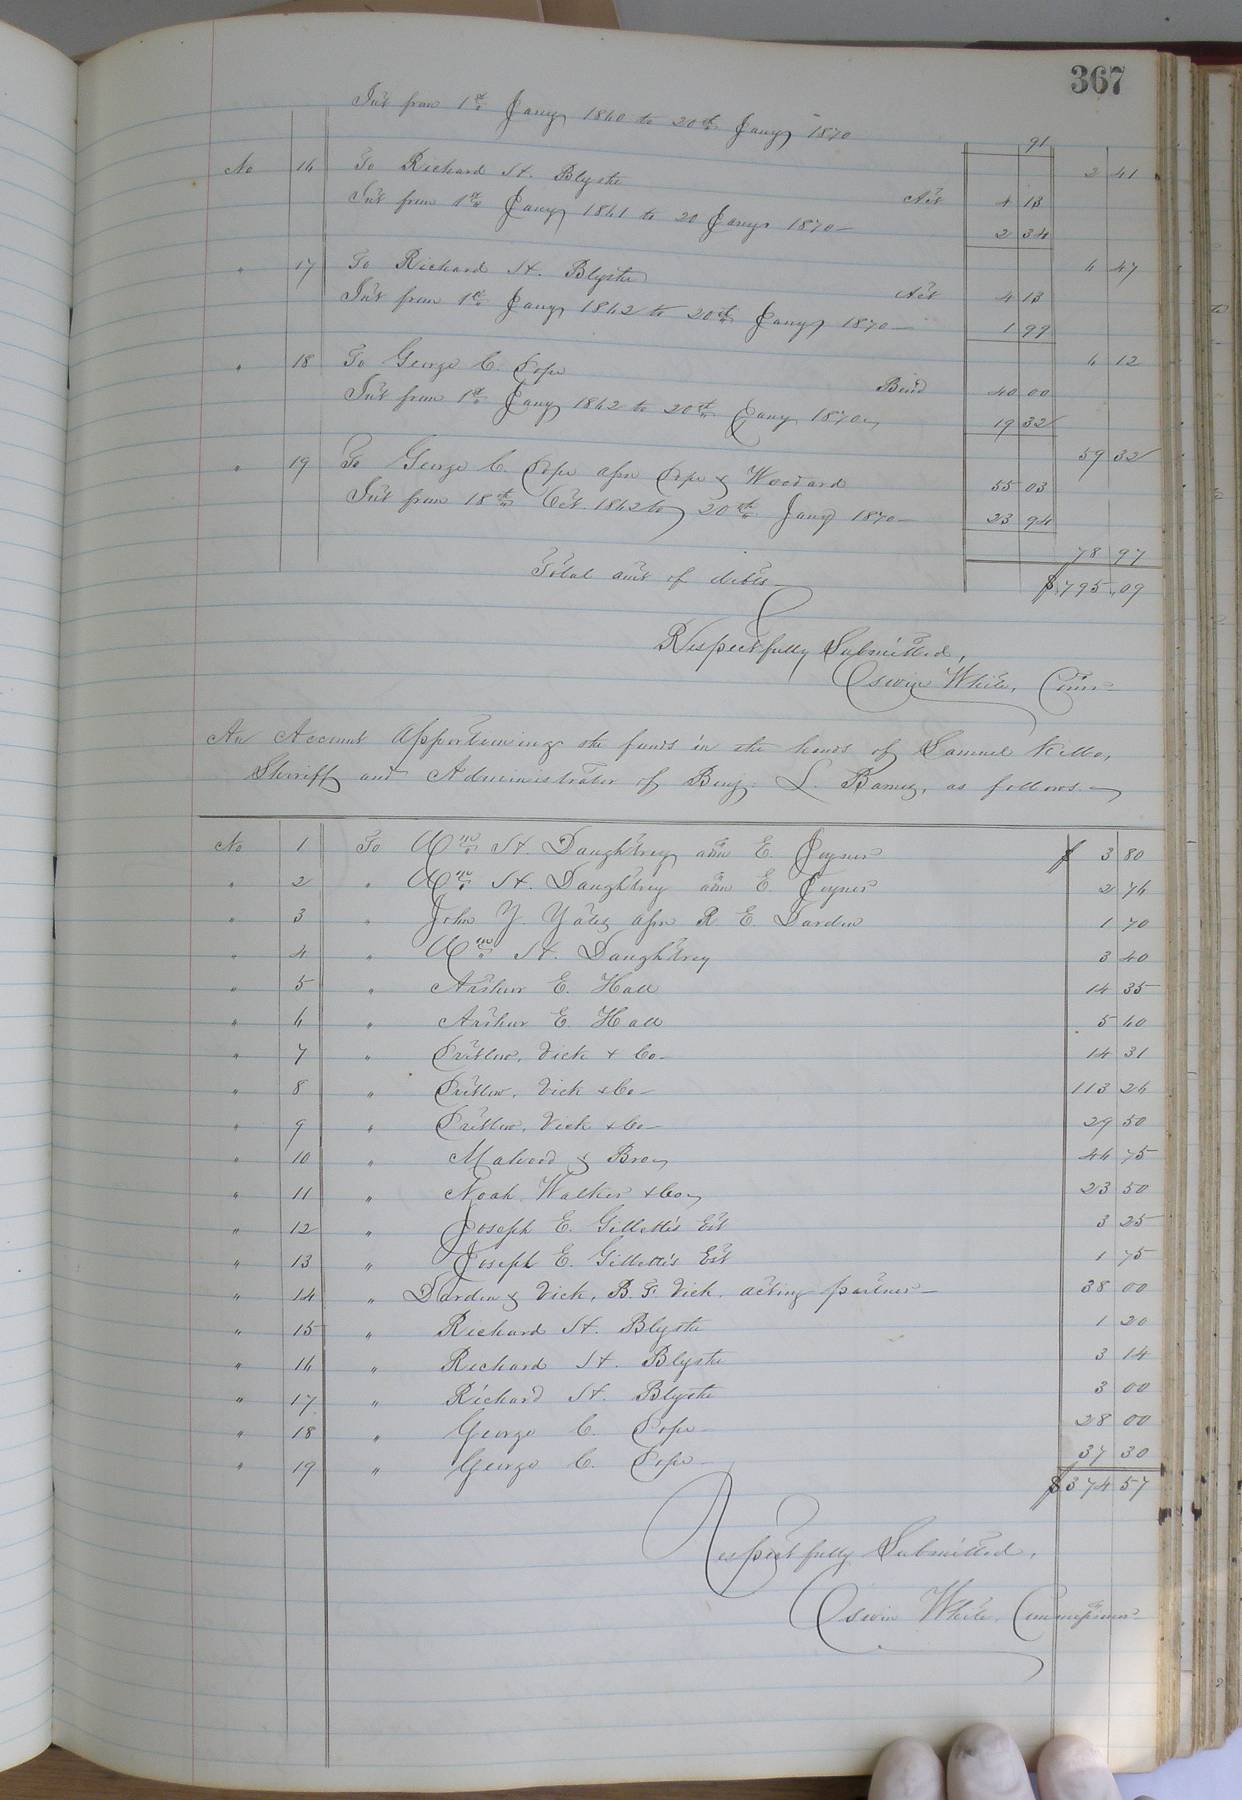 367
Int from 1st Jany 1860 to 20th Jany 1870 91
2 41
No 16 To Richard H. Blythe Act 4 13
Int from 1st Jany 1861 to 20 Jany 1870 — 2 34
6 47
" 17 To Richard H. Blythe Act 4 13
Int from 1st Jany 1862 to 20th Jany 1870 — 1 99
6 12
" 18 To George C. Pope Bond 40 00
Int from 1st Jany 1862 to 20th Jany 1870 19 32
59 32
" 19 To George C. Pope assn Pope & Woodard 55 03
Int from 18th Oct. 1862 to 20th Jany 1870 — 23 94
78 97
Total amt of debts $795.09
Respectfully Submitted,
Oswin White, Comr
An Account Apportioning the funds in the hands of Samuel Kello,
Sherriff and Administrator of Benj. L. Barnes, as follows —
No 1 To Wm H. Daughtrey adm E. Joyner $ 3 80
" 2 " Wm H. Daughtrey adm E. Joyner 2 76
" 3 " John Y. Yates assn R. E. Darden 1 70
" 4 " Wm H. Daughtrey 3 40
" 5 " Arthur E. Hall 14 35
" 6 " Arthur E. Hall 5 60
" 7 " Pretlow, Vick & Co — 14 31
" 8 " Pretlow, Vick & Co — 113 26
" 9 " Pretlow, Vick & Co — 29 50
" 10 " & Bro 46 75
" 11 " Noah Walker & Co 23 50
" 12 " Joseph E. Gillette's Est 3 25
" 13 " Joseph E. Gillette's Est 1 75
" 14 " Darden & Vick, B. F. Vick, acting partner — 38 00
" 15 " Richard H. Blythe 1 20
" 16 " Richard H. Blythe 3 14
" 17 " Richard H. Blythe 3 00
" 18 " George C. Pope 28 00
" 19 " George C. Pope 37 30
$374 57
Respectfully Submitted,
Oswin White, Commissioner